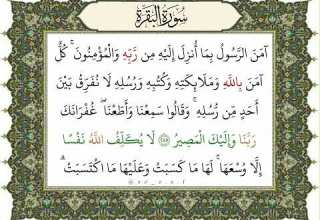 سُورَةُ البَقَرَةِ
آمَنَ الرَّسُولُ بِمَا أُنزِلَ إِلَيْهِ مِن رَّبِّهِ وَالْمُؤْمِنُونَ ۚ كُلٌّ
آمَنَ بِاللَّهِ وَمَلَائِكَتِهِ وَكُتُبِهِ وَرُسُلِهِ لَا نُفَرِّقُ بَيْنَ
أَحَدٍ مِّن رُّسُلِهِ ۚ وَقَالُوا سَمِعْنَا وَأَطَعْنَا ۖ غُفْرَانَكَ
رَبَّنَا وَإِلَيْكَ الْمَصِيرُ ﴿٢٨٥﴾ لَا يُكَلِّفُ اللَّهُ نَفْسًا
إِلَّا وُسْعَهَا ۚ لَهَا مَا كَسَبَتْ وَعَلَيْهَا مَا اكْتَسَبَتْ ۗ